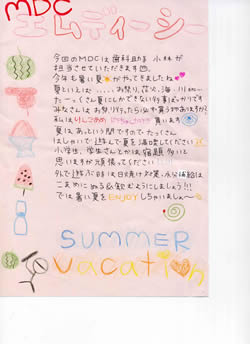 MDC
エムディーシー
今回のMDCは歯科助手 小林が
担当させていただきます
今年も暑い夏がやってきましたね
夏といえば……お祭り、花火、海、川 etc…
たーっくさん夏にしかできない行事ばっかりです
みなさんはお祭り行ったら必ず買う物ありますか？
私はりんごあめ 買います
夏はあっという間ですので たくさん
はしゃいで 遊んで 夏を満喫してください
小学生、学生さんとかは 宿題 多いと
思いますが 頑張ってください
外で遊ぶ時は 日焼け対策、水分補給は
こまめに 必ずするようにしましょう!!
では 暑い夏を ENJOY しちゃいましょ〜
SUMMER
vacation